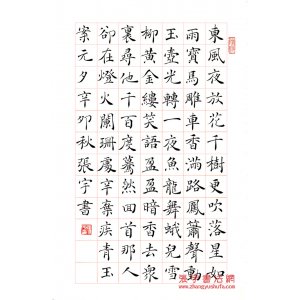 東風夜放花千樹更吹落星如
雨寶馬雕車香滿路鳳簫聲動
玉壺光轉一夜魚龍舞蛾兒雪
柳黃金縷笑語盈盈暗香去眾
裏尋他千百度驀然回首那人
卻在燈火闌珊處辛棄疾青玉
案元夕辛卯秋張宇書
www.zhangyushufa.com